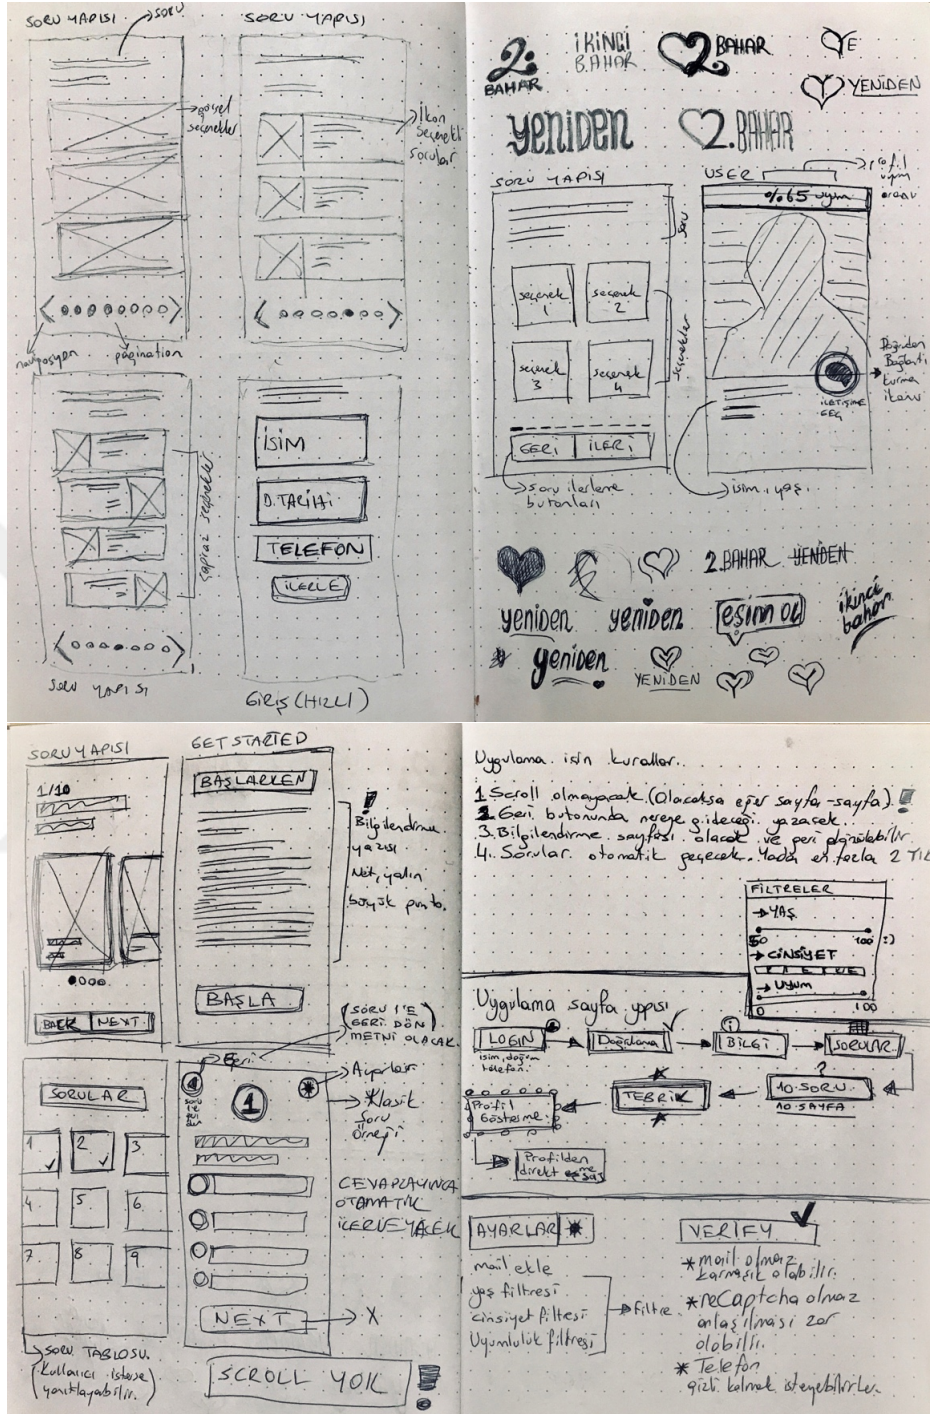 SORU YAPISI
SORU
görsel
seçenekler
navigasyon
pagination
SORU YAPISI
İkon
Seçenekli
Sorular
çapraz seçenekler
SORU YAPISI
İSİM
D.TARİHİ
TELEFON
İLERLE
GİRİŞ (HIZLI)
2.
BAHAR
İKİNCİ
BAHAR
2 BAHAR
YE
YENİDEN
yeniden
2.BAHAR
SORU YAPISI
soru
seçenek
1
seçenek
2
seçenek
3
seçenek
4
seçenekler
GERİ
İLERİ
soru ilerleme
butonları
USER
profil
uyum
oranı
%65 uyum
Bağlantı
kurma
ikonu
İLETİŞİME
GEÇ
isim, yaş
2.BAHAR
YENİDEN
yeniden
yeniden
eşim ol
ikinci
bahar
yeniden
YENİDEN
SORU YAPISI
1/10
BACK
NEXT
GET STARTED
BAŞLARKEN
Bilgilendirme
yazısı
Net, yalın
büyük punto.
BAŞLA
SORULAR
1
2
3
4
5
6
7
8
9
SORU TABLOSU.
(Kullanıcı isterse
yanıtlayabilir.)
(SORU 1'E
GERİ DÖN
METNİ OLACAK.)
Geri
1
Ayarlar
Klasik
Soru
Örneği
CEVAPLAYINCA
OTAMATİK
İLERLEYECEK
NEXT
X
SCROLL YOK
Uygulama için kurallar.
1.Scroll olmayacak.(Olacaksa eğer sayfa-sayfa)!
2.Geri butonunda nereye gideceği yazacak.
3.Bilgilendirme sayfası olacak ve geri dönülebilir
4. Sorular otomatik geçecek. Yada en fazla 2 TIK
FİLTRELER
YAŞ
50
100 :)
CİNSİYET
UYUM
0
100
Uygulama sayfa yapısı
LOGIN
isim, doğum
telefon.
Doğrulama
BİLGİ
SORULAR
10 SORU
10 SAYFA
TEBRİK
Profil
Gösterme
Profilden
direkt mesaj
AYARLAR
mail ekle
yaş filtresi
cinsiyet filtesi
Uyumluluk filtreşi
Filtre
VERIFY
* mail olmaz
karmaşık olabilir.
* reCaptcha olmaz
anlaşılması zor
olabilir.
* Telefon
gizli kalmak isteyebilirler.